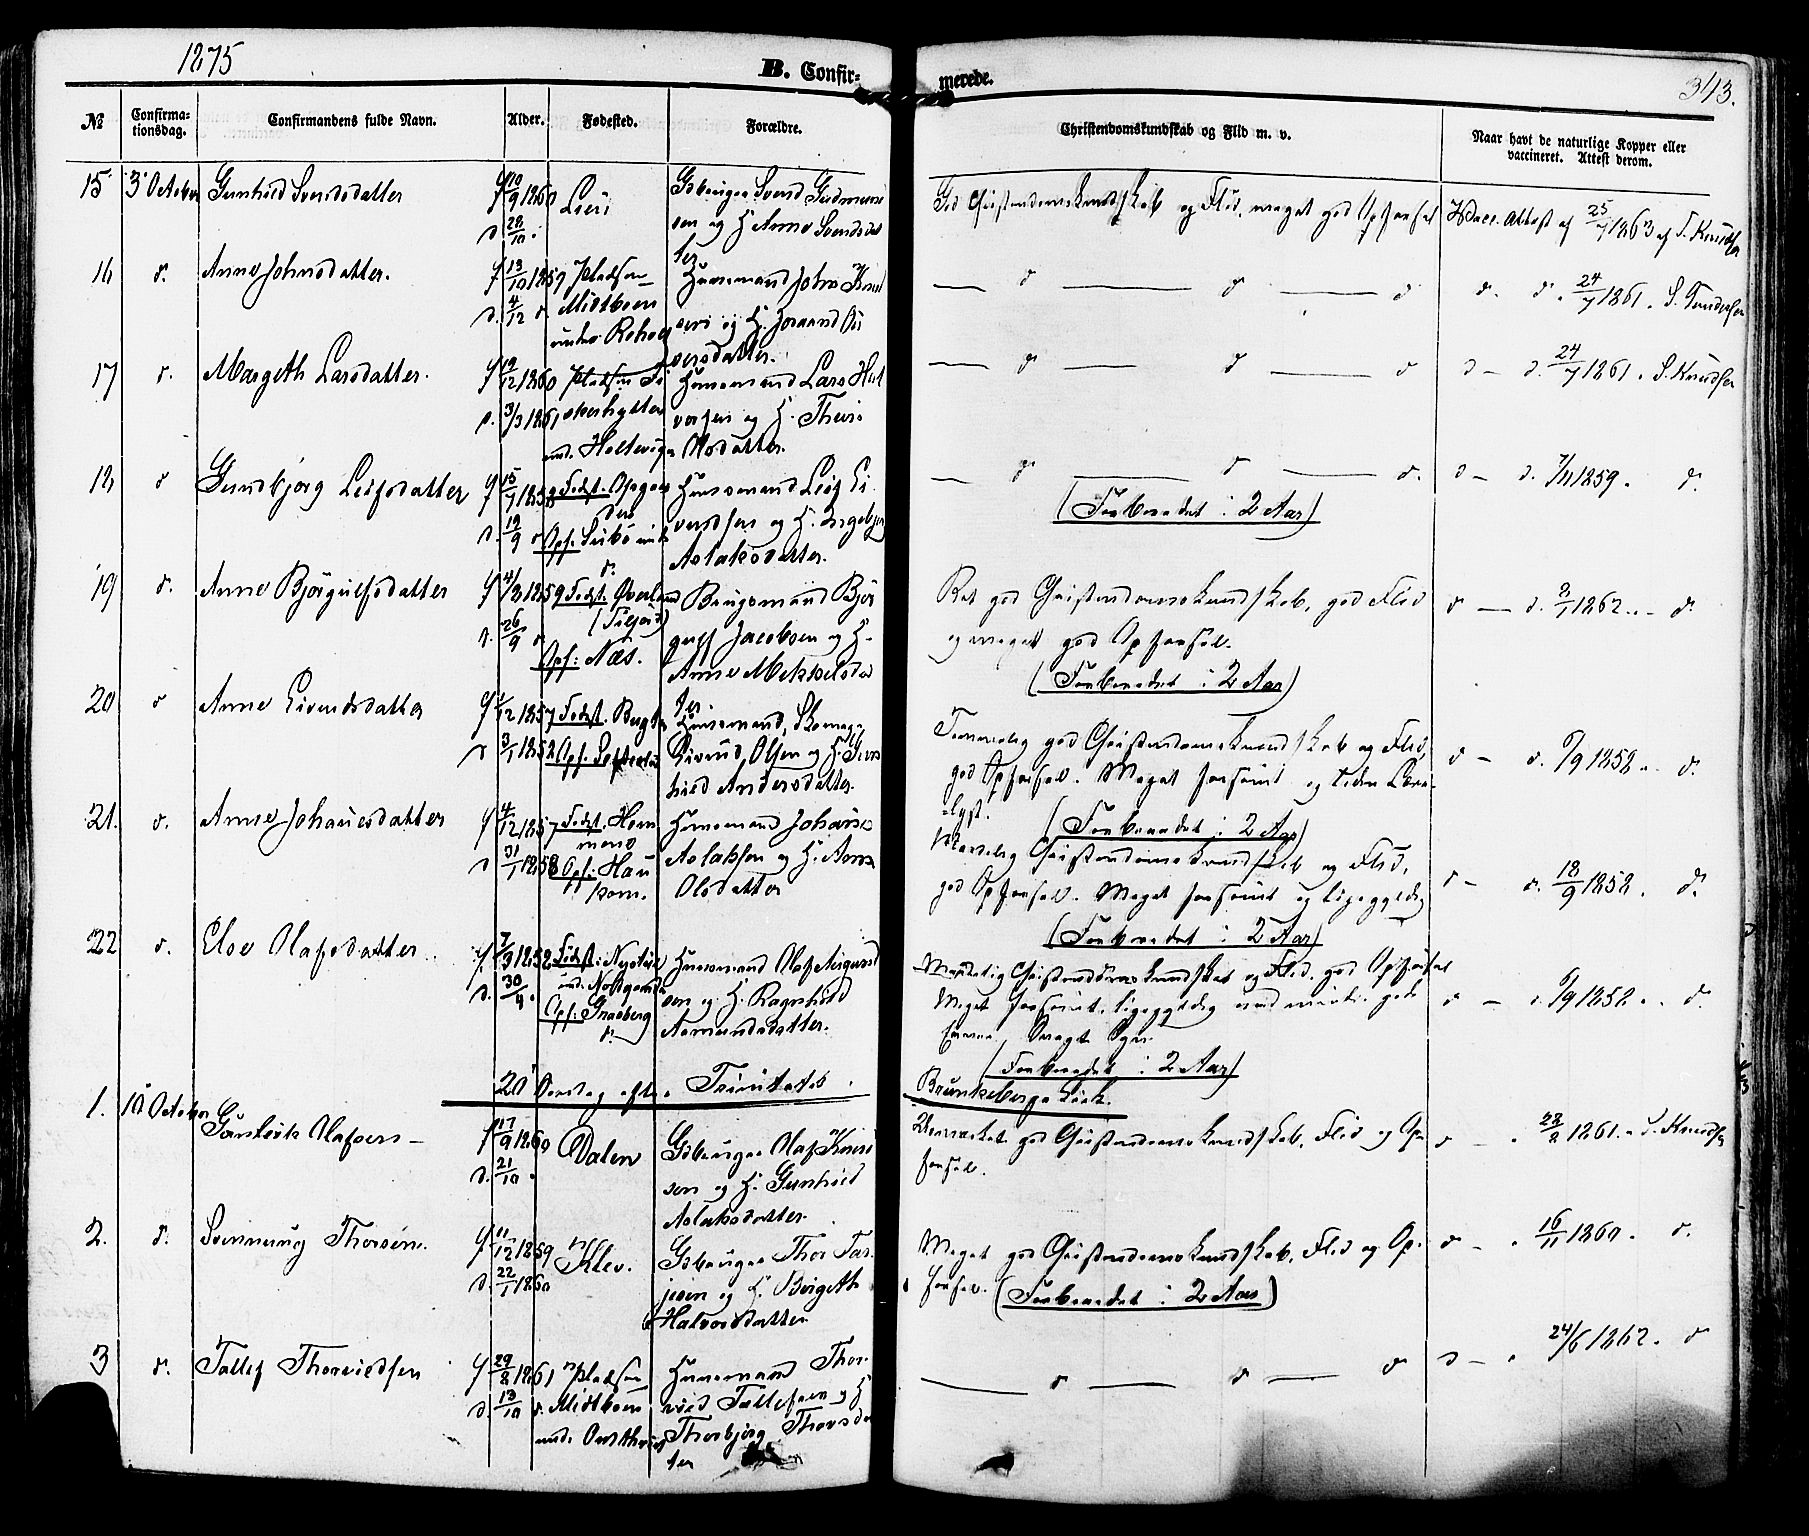 1875
B. Confir-
merede.
343.
№
Confirma-
tionsdag.
Confirmandens fulde Navn.
Alder.
Fødested.
Forældre.
Christendomskundskab og Flid m. v.
Naar havt de naturlige Kopper eller
vaccineret. Attest derom.
15 3 October Gunhild Svendsdatter
f 10/9 1860
d. 28/10.
Gbruger Svend Gudmund
sen og H. Anne Svendsdat
ter
God Christendomskundskab og Flid, meget god Opførsel
Vacc. Attest af 25/7 1863 af S. Knudsen
16 d. Anne Johnsdatter.
f 13/10 1859
d. 4/12 d.
Pladsen
Midtboen
under
Huusmand John Knud
sen og H. Joraand Ei
versdatter.
d d d
d. d. 24/7 1861.
17 d. Margeth Larsdatter.
f 19/12 1860
d. 3/3 1861
Pladsen
und. Heltveig
Huusmand Lars Hal
vorsen og H. Thuri
Olsdatter.
d d d
d - d. 24/7 1861. S. Knudsen
18 d Gundbjørg Leifsdatter
f 15/7 1858
d. 19/9 d
Fødst.
Opf:
Huusmand Leif Ei
vindsen og H. Ingebjør
Aslaksdatter.
d d d.
(Forberedet i 2 Aar)
d - d. 7/11 1859. d.
19 d. Anne Bjørgulfsdatter
f 4/3 1859
d. 26/9 d
Fødst. Qverland
(Siljord)
Opf: Næs.
Brugsmand Bjør
gulf Jacobsen og H.
Anne Mikkelsdat
ter.
Ret god Christendomskundskab, god Flid
og meget god Opførsel.
(Forberedet i 2 Aar)
d - d. 8/1 1862. - d.
20 d Anne Eivindsdatter
f 1/12 1857
d 3/1 1858
Fødst.
Opf.
Huusmand, Skomag.
Eivind Olsen og H. Gun
hild Andersdatter.
Temmelig god Christendomskundskab og Flid,
god Opførsel. Meget forsømt og liden Lære-
lyst.
(Forberedet i 2 Aar)
d - d. 6/9 1858. d.
21. d. Anne Johanesdatter
f 4/12 1857
d 31/1 1858
Fødst. Hem
mene
Opf: Hau
kom.
Huusmand Johanes
Aslaksen og H. Anne
Olsdatter
Maadelig Christendomskundskab og Flid,
god Opførsel. Meget forsømt og ligegyldig
(Forberedet i 2 Aar)
d - d. 18/9 1858. d.
22 d. Else Olafsdatter
f. 7/3 1858
d. 30/4.
Fødst:
Opf: Graaberg
d.
Huusmand Olaf Aasmund
sen og H. Ragnhild
Aamundsdatter.
Maadelig Christendomskundskab og Flid, god Opførsel
Meget forsømt, ligegyldig med mindre gode
Evner. Svaget Syn.
(Forberedet i 2 Aar)
d - d. 6/9 1858. d.
20 Søndag efter Trinitatis.
Brunkebergs Kirke.
1. 10 October Gunleik Olafsen
f 17/9 1860
d. 21/10.
Dalen
Gbruger Olaf Knud
sen og H. Gunhild
Aslaksdatter.
Udmærket god Christendomskundskab, Flid og Op
førsel.
d - . 28/8 1861. S. Knudsen
2. d. Svennung Thorsen.
f 11/12 1859
d 22/1 1860
Klev.
Gbruger Thor Tar
jeisen og H. Birgeth
Halvorsdatter
Meget god Christendomskundskab, Flid og Op-
førsel. (Forberedet i 2 Aar)
d - . 16/11 1860. d.
3 d. Tallef Thorvildsen
f 29/8 1861
d. 13/10 d.
Pladsen
Midtboen
und.
Huusmand Thor
vild Tallefsen og H
Thorbjørg Thorsdat
ter
d d d
d - . 24/6 1862. d